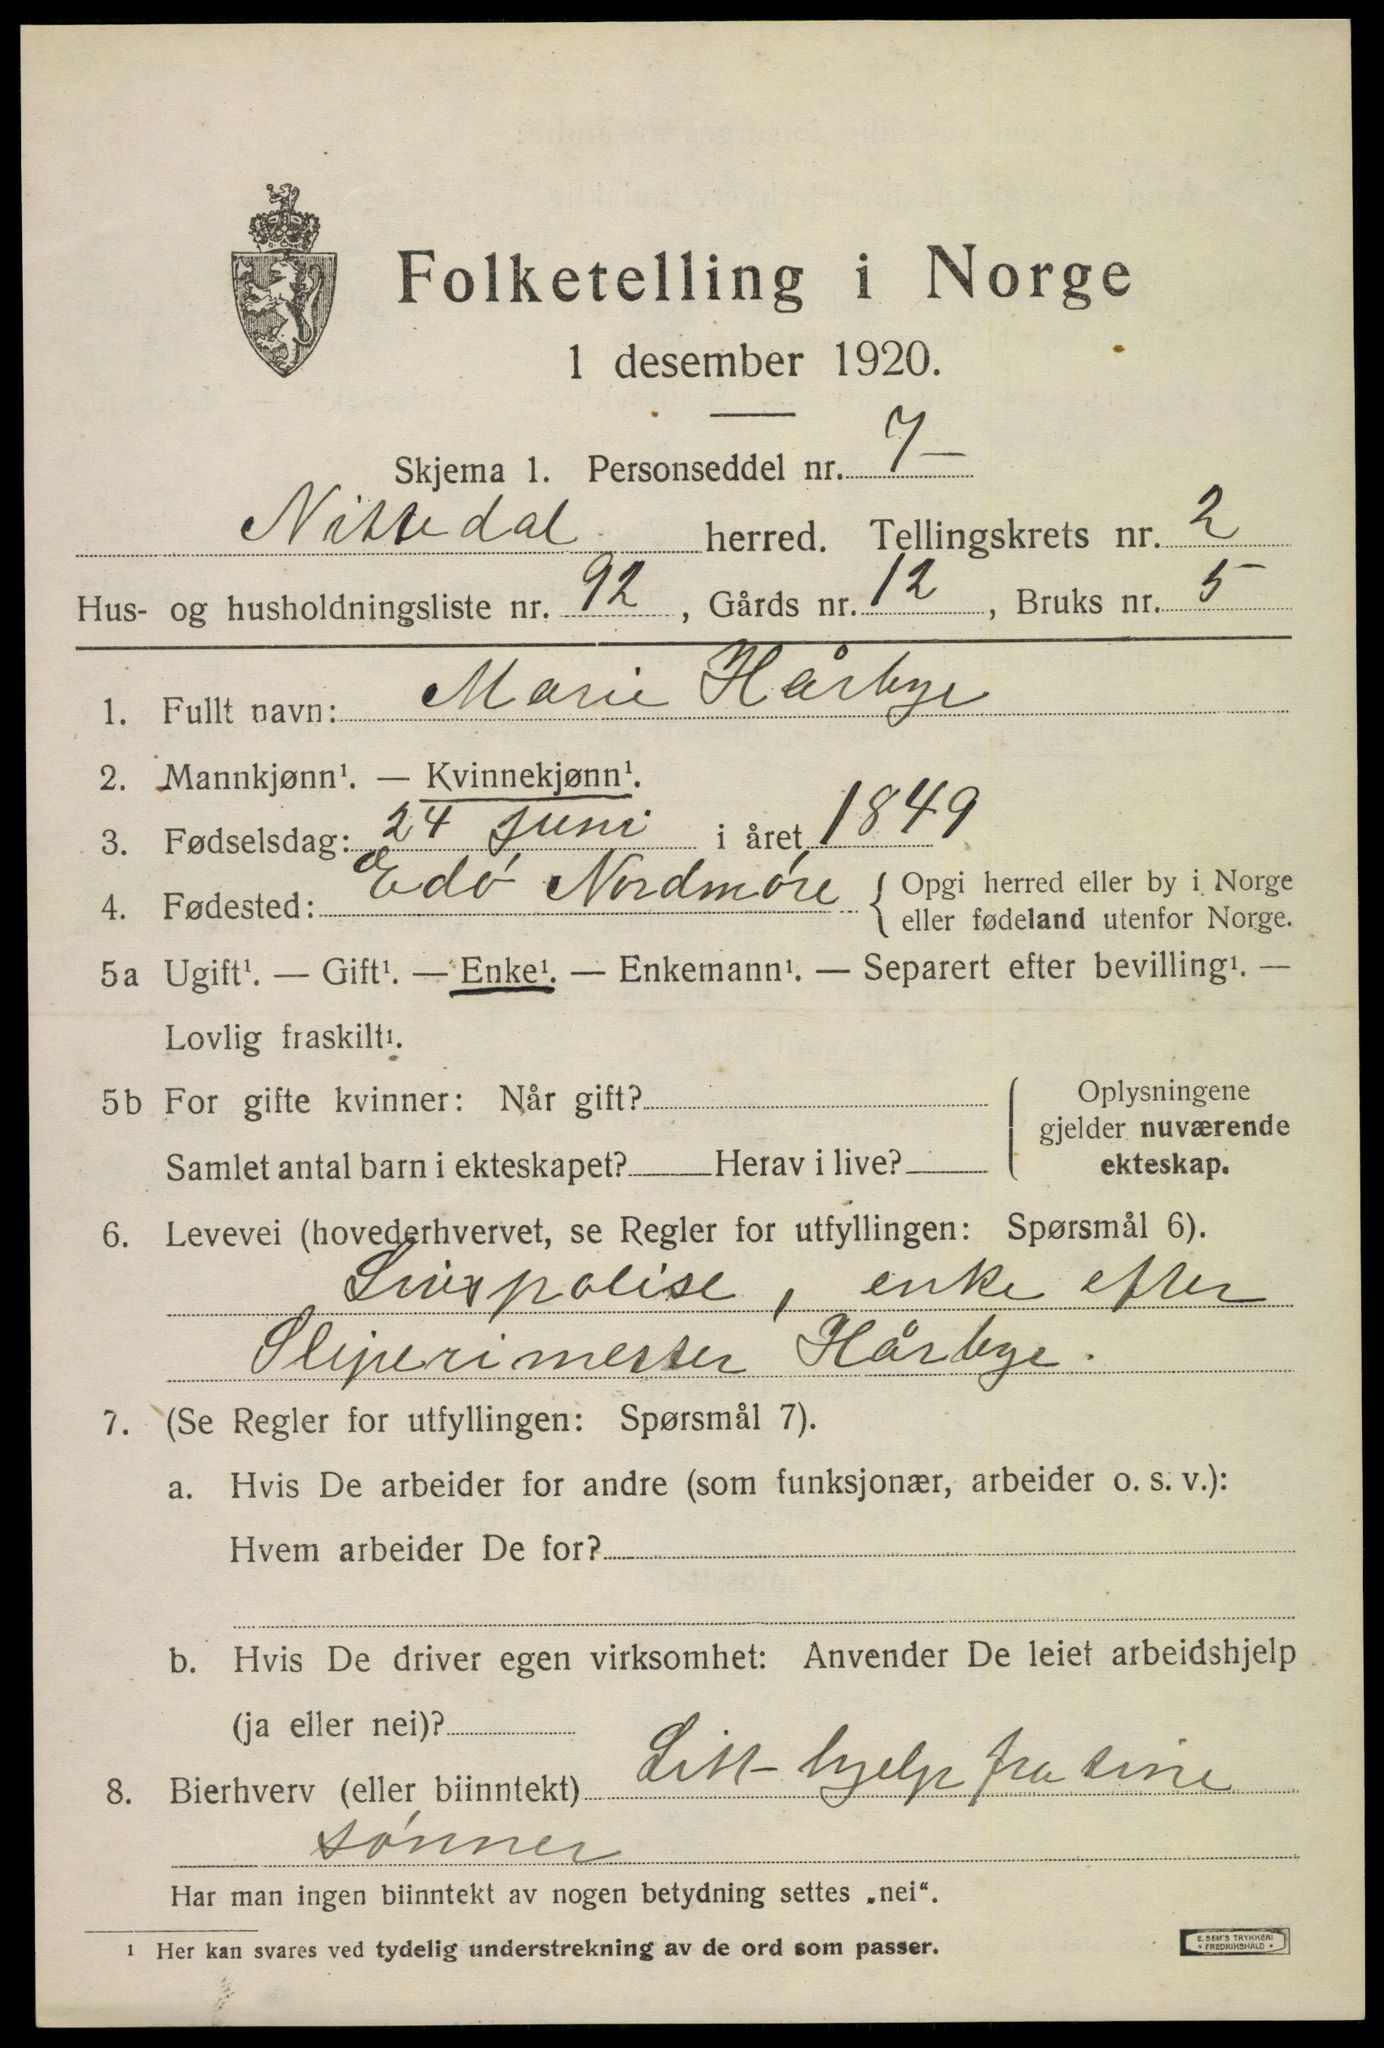 Folketelling i Norge
1 desember 1920.
Skjema 1. Personseddel nr. 7
Nittedal herred. Tellingskrets nr. 2
Hus- og husholdningsliste nr. 92, Gårds nr. 12, Bruks nr. 5
1. Fullt navn: Marie Hårbye
2. Mannkjønn¹. — Kvinnekjønn¹.
3. Fødselsdag: 24 juni i året 1849
4. Fødested: Edø Nordmøre { Opgi herred eller by i Norge
eller fødeland utenfor Norge.
5a Ugift¹. — Gift¹. — Enke¹. — Enkemann¹. — Separert efter bevilling¹. —
Lovlig fraskilt¹.
5b For gifte kvinner: Når gift?
Samlet antal barn i ekteskapet? Herav i live?
Oplysningene
gjelder nuværende
ekteskap.
6. Levevei (hovederhvervet, se Regler for utfyllingen: Spørsmål 6).
Livspolise, enke efter
Sliperimester Hårbye.
7. (Se Regler for utfyllingen: Spørsmål 7).
a. Hvis De arbeider for andre (som funksjonær, arbeider o. s. v.):
Hvem arbeider De for?
b. Hvis De driver egen virksomhet: Anvender De leiet arbeidshjelp
(ja eller nei)?
8. Bierhverv (eller biinntekt) Litt hjelp fra sine
sønner
Har man ingen biinntekt av nogen betydning settes „nei“.
¹ Her kan svares ved tydelig understrekning av de ord som passer.
E. SEM'S TRYKKERI
• FREDRIKSHALD •